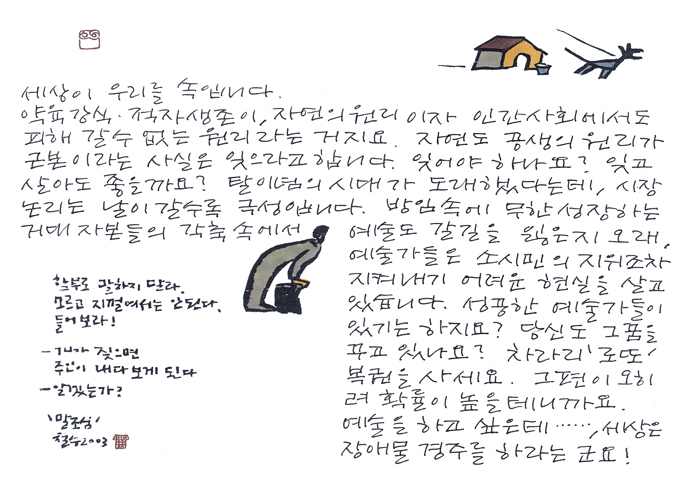 세상이 우리를 속입니다.
약육강식·적자생존이, 자연의 원리이자 인간사회에서도
피해 갈 수 없는 원리라는 거지요. 자연도 공생의 원리가
근본이라는 사실은 잊으라고 합니다. 잊어야 하나요? 잊고
살아도 좋을까요? 탈이념의 시대가 도래했다는데, 시장
논리는 날이 갈수록 극성입니다. 방임 속에 무한 성장하는
거대 자본들의 각축 속에서
예술도 갈길을 잃은지 오래,
예술가들은 소시민의 지위조차
지켜내기 어려운 현실을 살고
있습니다. 성공한 예술가들이
있기는 하지요? 당신도 그 꿈을
꾸고 있나요? 차라리 '로또'
복권을 사세요. 그편이 오히
려 확률이 높을테니까요.
예술을 하고 싶은데……, 세상은
장애물 경주를 하라는 군요!
함부로 말하지 말라.
모르고 지껄여서는 안된다.
들어보라!
-개가 짖으면
주인이 내다보게 된다
-알겠는가?
'말조심'
철수2003